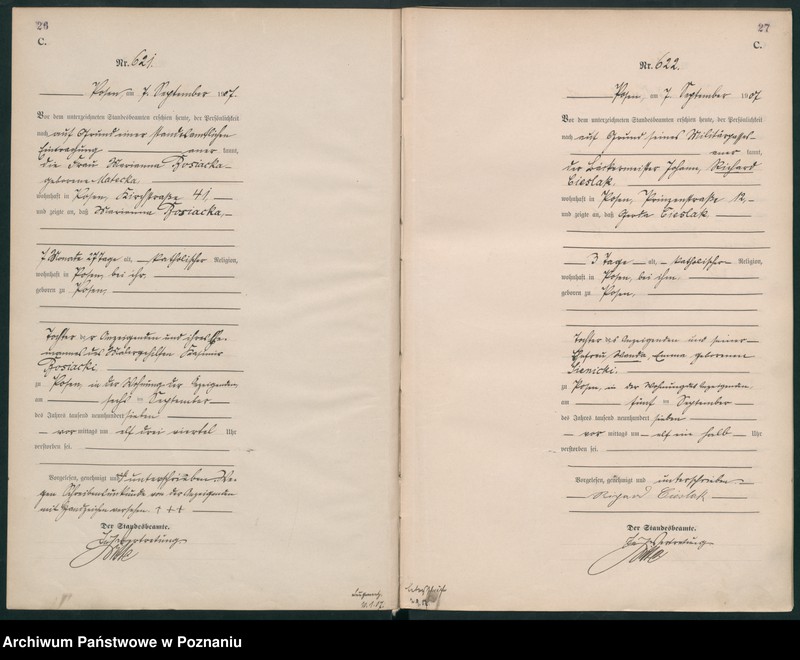 26
C.
Nr. 621.
Posen, am 7. September 1907.
Vor dem unterzeichneten Standesbeamten erschien heute, der Persönlichkeit
nach auf Grund einer standesamtlichen
Eintragung kannt,
die Frau Marianna Kosiacka
geborene Matecka
wohnhaft in Posen, Kirchstraße 41,
und zeigte an, daß Marianna Kosiacka,
7 Monate 27 Tage alt, katholischer Religion,
wohnhaft in Posen, bei ihr
geboren zu Posen,
Tochter der Anzeigenden und ihres Ehe-
mannes des Malergehilfen Kasimir
Kosiacki
zu Posen, in der Wohnung der Anzeigenden
am sechs ten September
des Jahres tausend neunhundert sieben
vor mittags um elf drei viertel Uhr
verstorben sei.
Vorgelesen, genehmigt und unterschrieben We-
gen Schreibensunkunde von der Anzeigenden
mit Handzeichen versehen. +++
Der Standesbeamte.
In Vertretung
27
C.
Nr. 622.
Posen, am 7. September 1907
Vor dem unterzeichneten Standesbeamten erschien heute, der Persönlichkeit
nach auf Grund seines Militärpasses
kannt,
der Bäckermeister Johann, Richard
Cieslak
wohnhaft in Posen, Prinzenstraße 12,
und zeigte an, daß Gerda Cieslak
3 Tage alt, katholischer Religion,
wohnhaft in Posen, bei ihm
geboren zu Posen,
Tochter des Anzeigenden und seiner
Ehefrau Wanda, Emma geborenen
Sienicki.
zu Posen, in der Wohnung des Anzeigenden
am fünf ten September
des Jahres tausend neunhundert sieben
vor mittags um elf ein halb Uhr
verstorben sei.
Vorgelesen, genehmigt und unterschrieben
Richard Cieslak
Der Standesbeamte.
In Vertretung
Archiwum Państwowe w Poznaniu